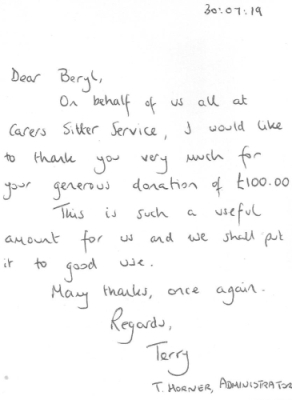 30:07:19
Dear Beryl,
On behalf of us all at
Carers Sitter Service, I would like
to thank you very much for
your generous donation of £100.00
This is such a useful
amount for us and we shall put
it to good use.
Many thanks, once again.
Regards,
Terry
T. HORNER, ADMINISTRATOR